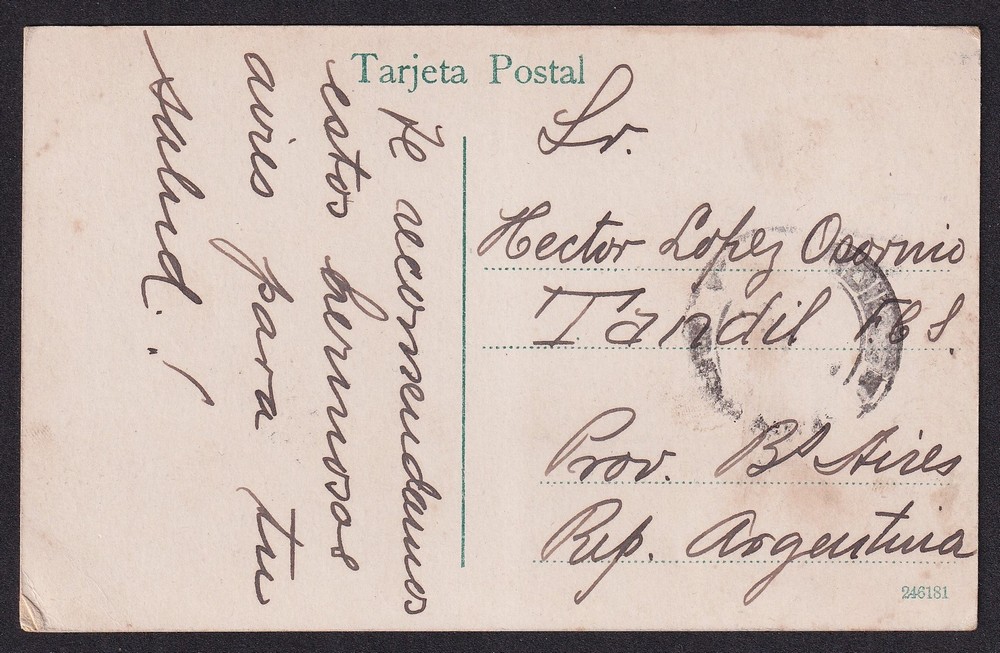 Tarjeta Postal
Te recomendamos
estos hermosos
aires para tu
salud.!
Sr.
Hector Lopez Osornio
Tandil F.C.S.
Prov. Bs Aires
Rep. Argentina
246181